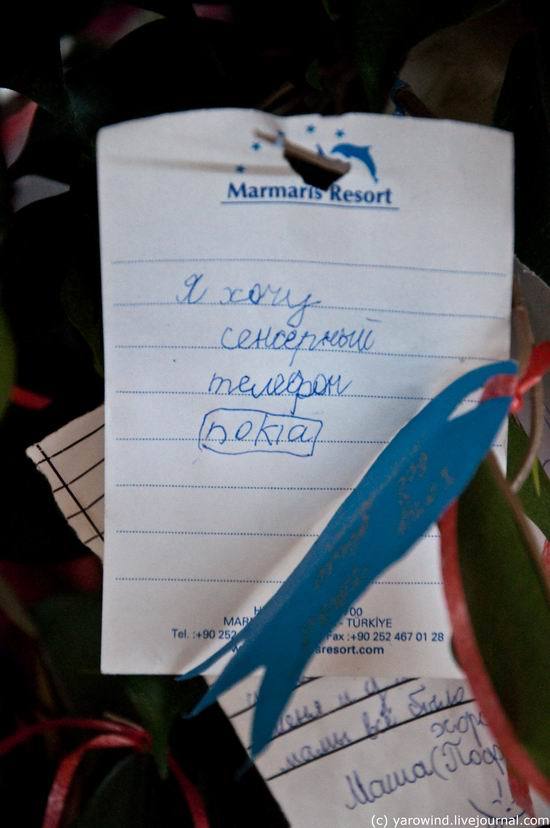 Marmaris Resort
Я хочу
сенсерный
телефон
nokia
00
- TÜRKİYE
Tel. :+90 252
Fax :+90 252 467 01 28
resort.com
мамы всё было
хоро
Маша (Подр
(c) yarowind.livejournal.com